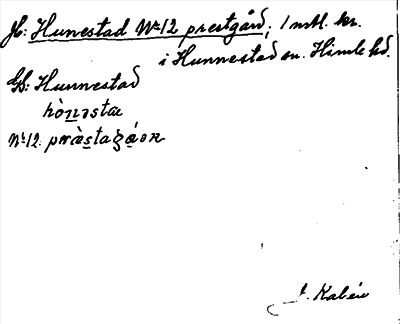 Jb: Hunestad No 12 prestgård, 1 mtl. kr.
i Hunnestad sn. Himle hd.
Gb: Hunnestad
hònəsta
No 12. præstagáɷn
J. Kalén